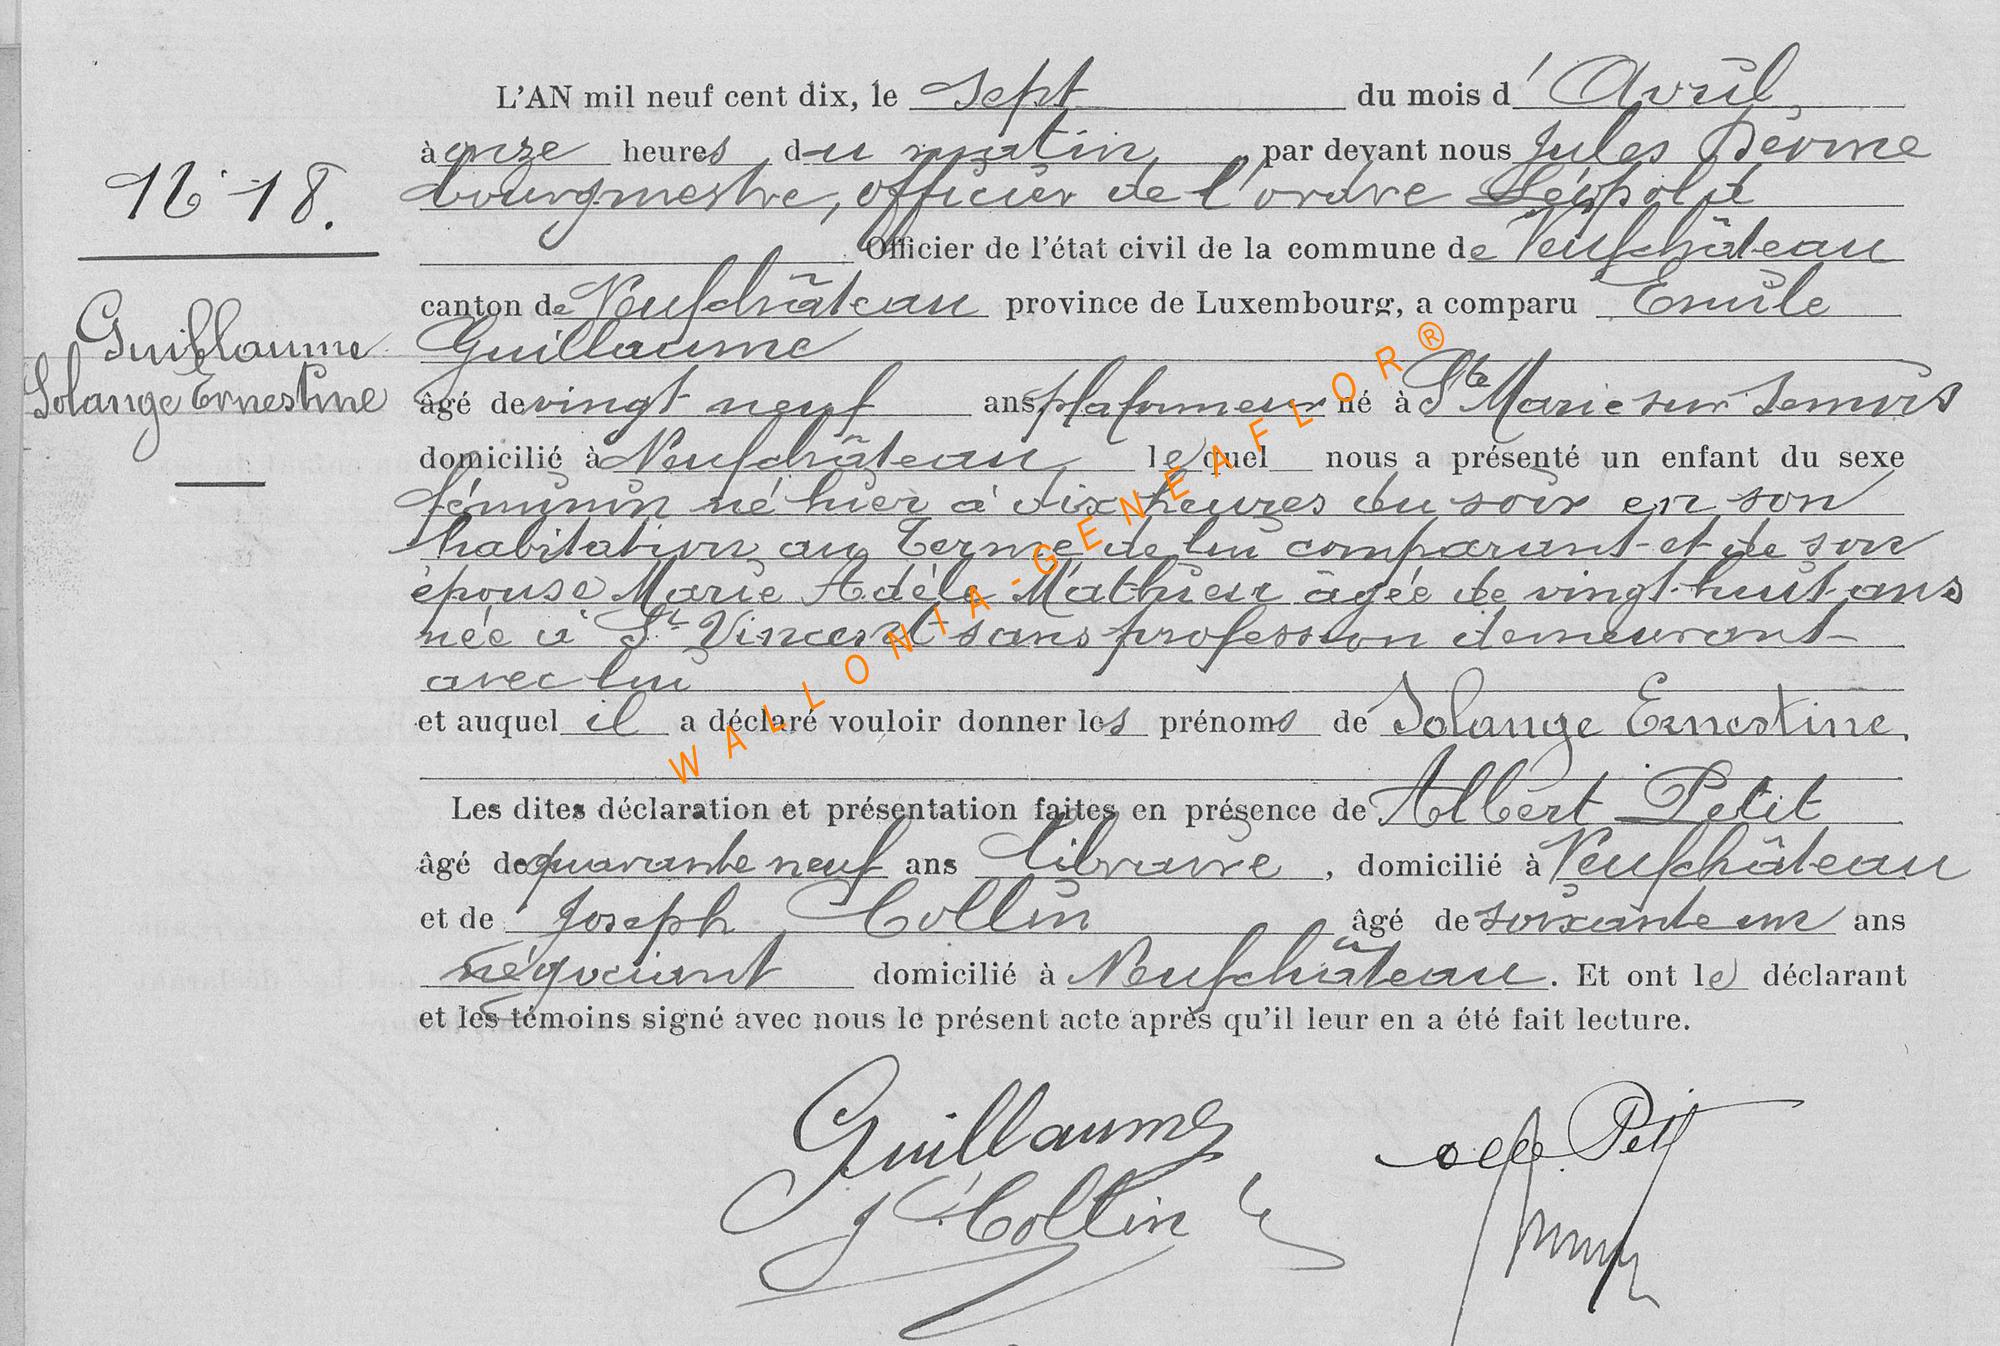 L'AN mil neuf cent dix, le sept du mois d'Avril,
à onze heures du matin, par devant nous Jules
bourgmestre, officier de l'ordre Léopold
Officier de l'état civil de la commune de Neufchâteau
canton de Neufchâteau province de Luxembourg, a comparu Emile
Guillaume
âgé de vingt neuf ans, plafonneur né à Ste Marie sur Semois
domicilié à Neufchâteau, lequel nous a présenté un enfant du sexe
féminin né hier à dix heures du soir en son
habitation au Terme de lui comparant et de son
épouse Marie Adèle Mathieu âgée de vingt-huit ans
née à St Vincent sans profession demeurant
avec lui
et auquel il a déclaré vouloir donner les prénoms de Solange Ernestine.
Les dites déclaration et présentation faites en présence de Albert Petit
âgé de quarante neuf ans libraire, domicilié à Neufchâteau
et de Joseph Collin âgé de soixante un ans
négociant domicilié à Neufchâteau. Et ont le déclarant
et les témoins signé avec nous le présent acte après qu'il leur en a été fait lecture.
N° 18.
Guillaume
Solange Ernestine
Guillaume
J Collin
Petit
WALLONIA-GENEAFLOR®